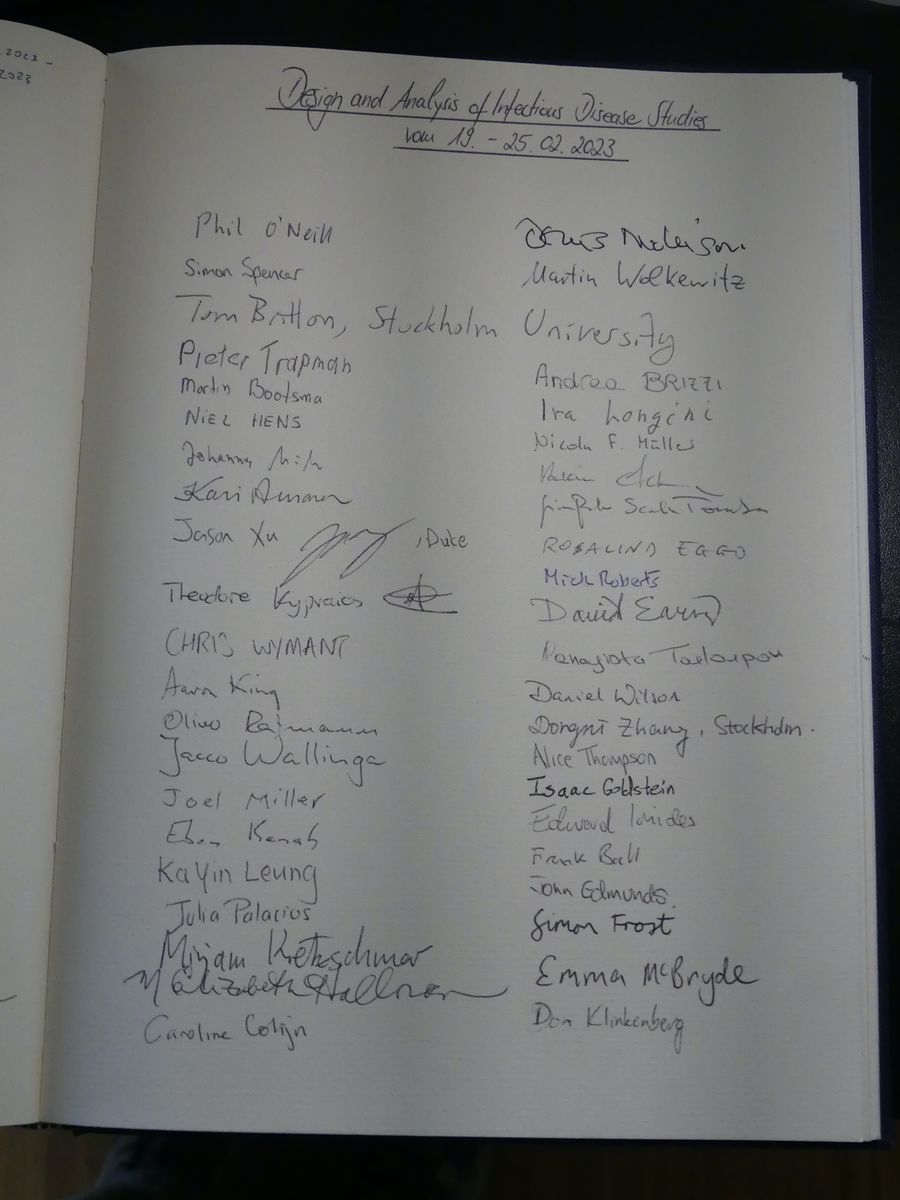 2023 -
2023
Design and Analysis of Infectious Disease Studies
vom 19. - 25.02.2023
Phil O'Neill
Simon Spencer
Tom Britton, Stockholm University
Pieter Trapman
Martin Bootsma
NIEL HENS
Johannes
Kari Auranen
Jason Xu , Duke
Theodore Kypraios
CHRIS WYMANT
Aaron King
Oliver Ratmann
Jacco Wallinga
Joel Miller
Eben Kenah
KaYin Leung
Julia Palacios
Mirjam Kretzschmar
M Elizabeth Halloran
Caroline Colijn
Denis Mollison
Martin Wolkewitz
Andrea BRIZZI
Ira Longini
Nicola F. Müller
Scalia Tomba
ROSALIND EGGO
Mick Roberts
David Earn
Panayiota Touloupou
Daniel Wilson
Dongni Zhang, Stockholm.
Alice Thompson
Isaac Goldstein
Edward Ionides
Frank Ball
John Edmunds.
Simon Frost
Emma McBryde
Don Klinkenberg